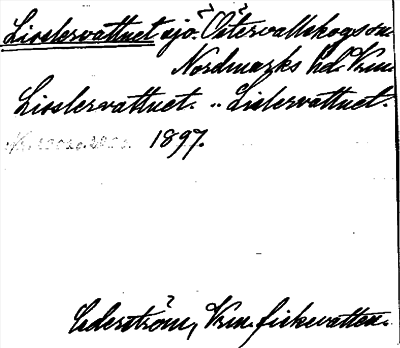 Lisslervattnet sjö. Östervallskogs sn.
Nordmarks hd. Vrm.
Lisslervattnet. .. Lislervattnet.
1897.
Cederström, Vrm. fiskevatten.